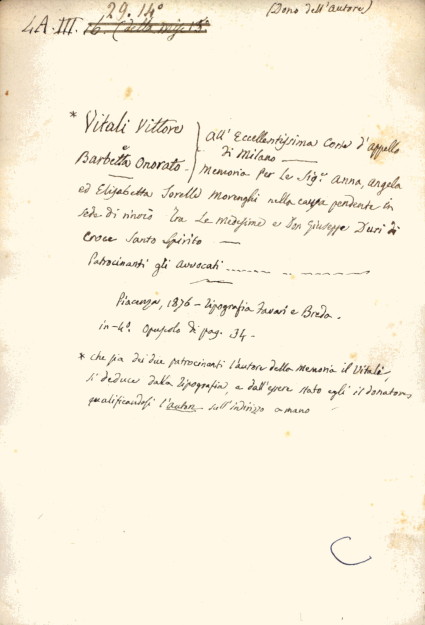 29. 14°
(Dono dell'Autore)
4A. III. 16 (della mis. 15ª
* Vitali Vittore
e
Barbetta Onorato
All' Eccellentissima Corte d'appello
di Milano —
Memoria per le Sig.e Anna, Angela
ed Elisabetta Sorelle Morenghi nella causa pendente in
sede di rinvio tra le medesime e Don Giuseppe Duri di
Croce Santo Spirito —
Patrocinanti gli Avvocati
Piacenza, 1876 - Tipografia Favari e Breda.
in-4°. Opuscolo di pag. 34 -
* che sia dei due patrocinanti l'autore della Memoria il Vitali,
si deduce dalla Tipografia, e dall'essere stato egli il donatore
qualificandosi l'autore sull'indirizzo a mano